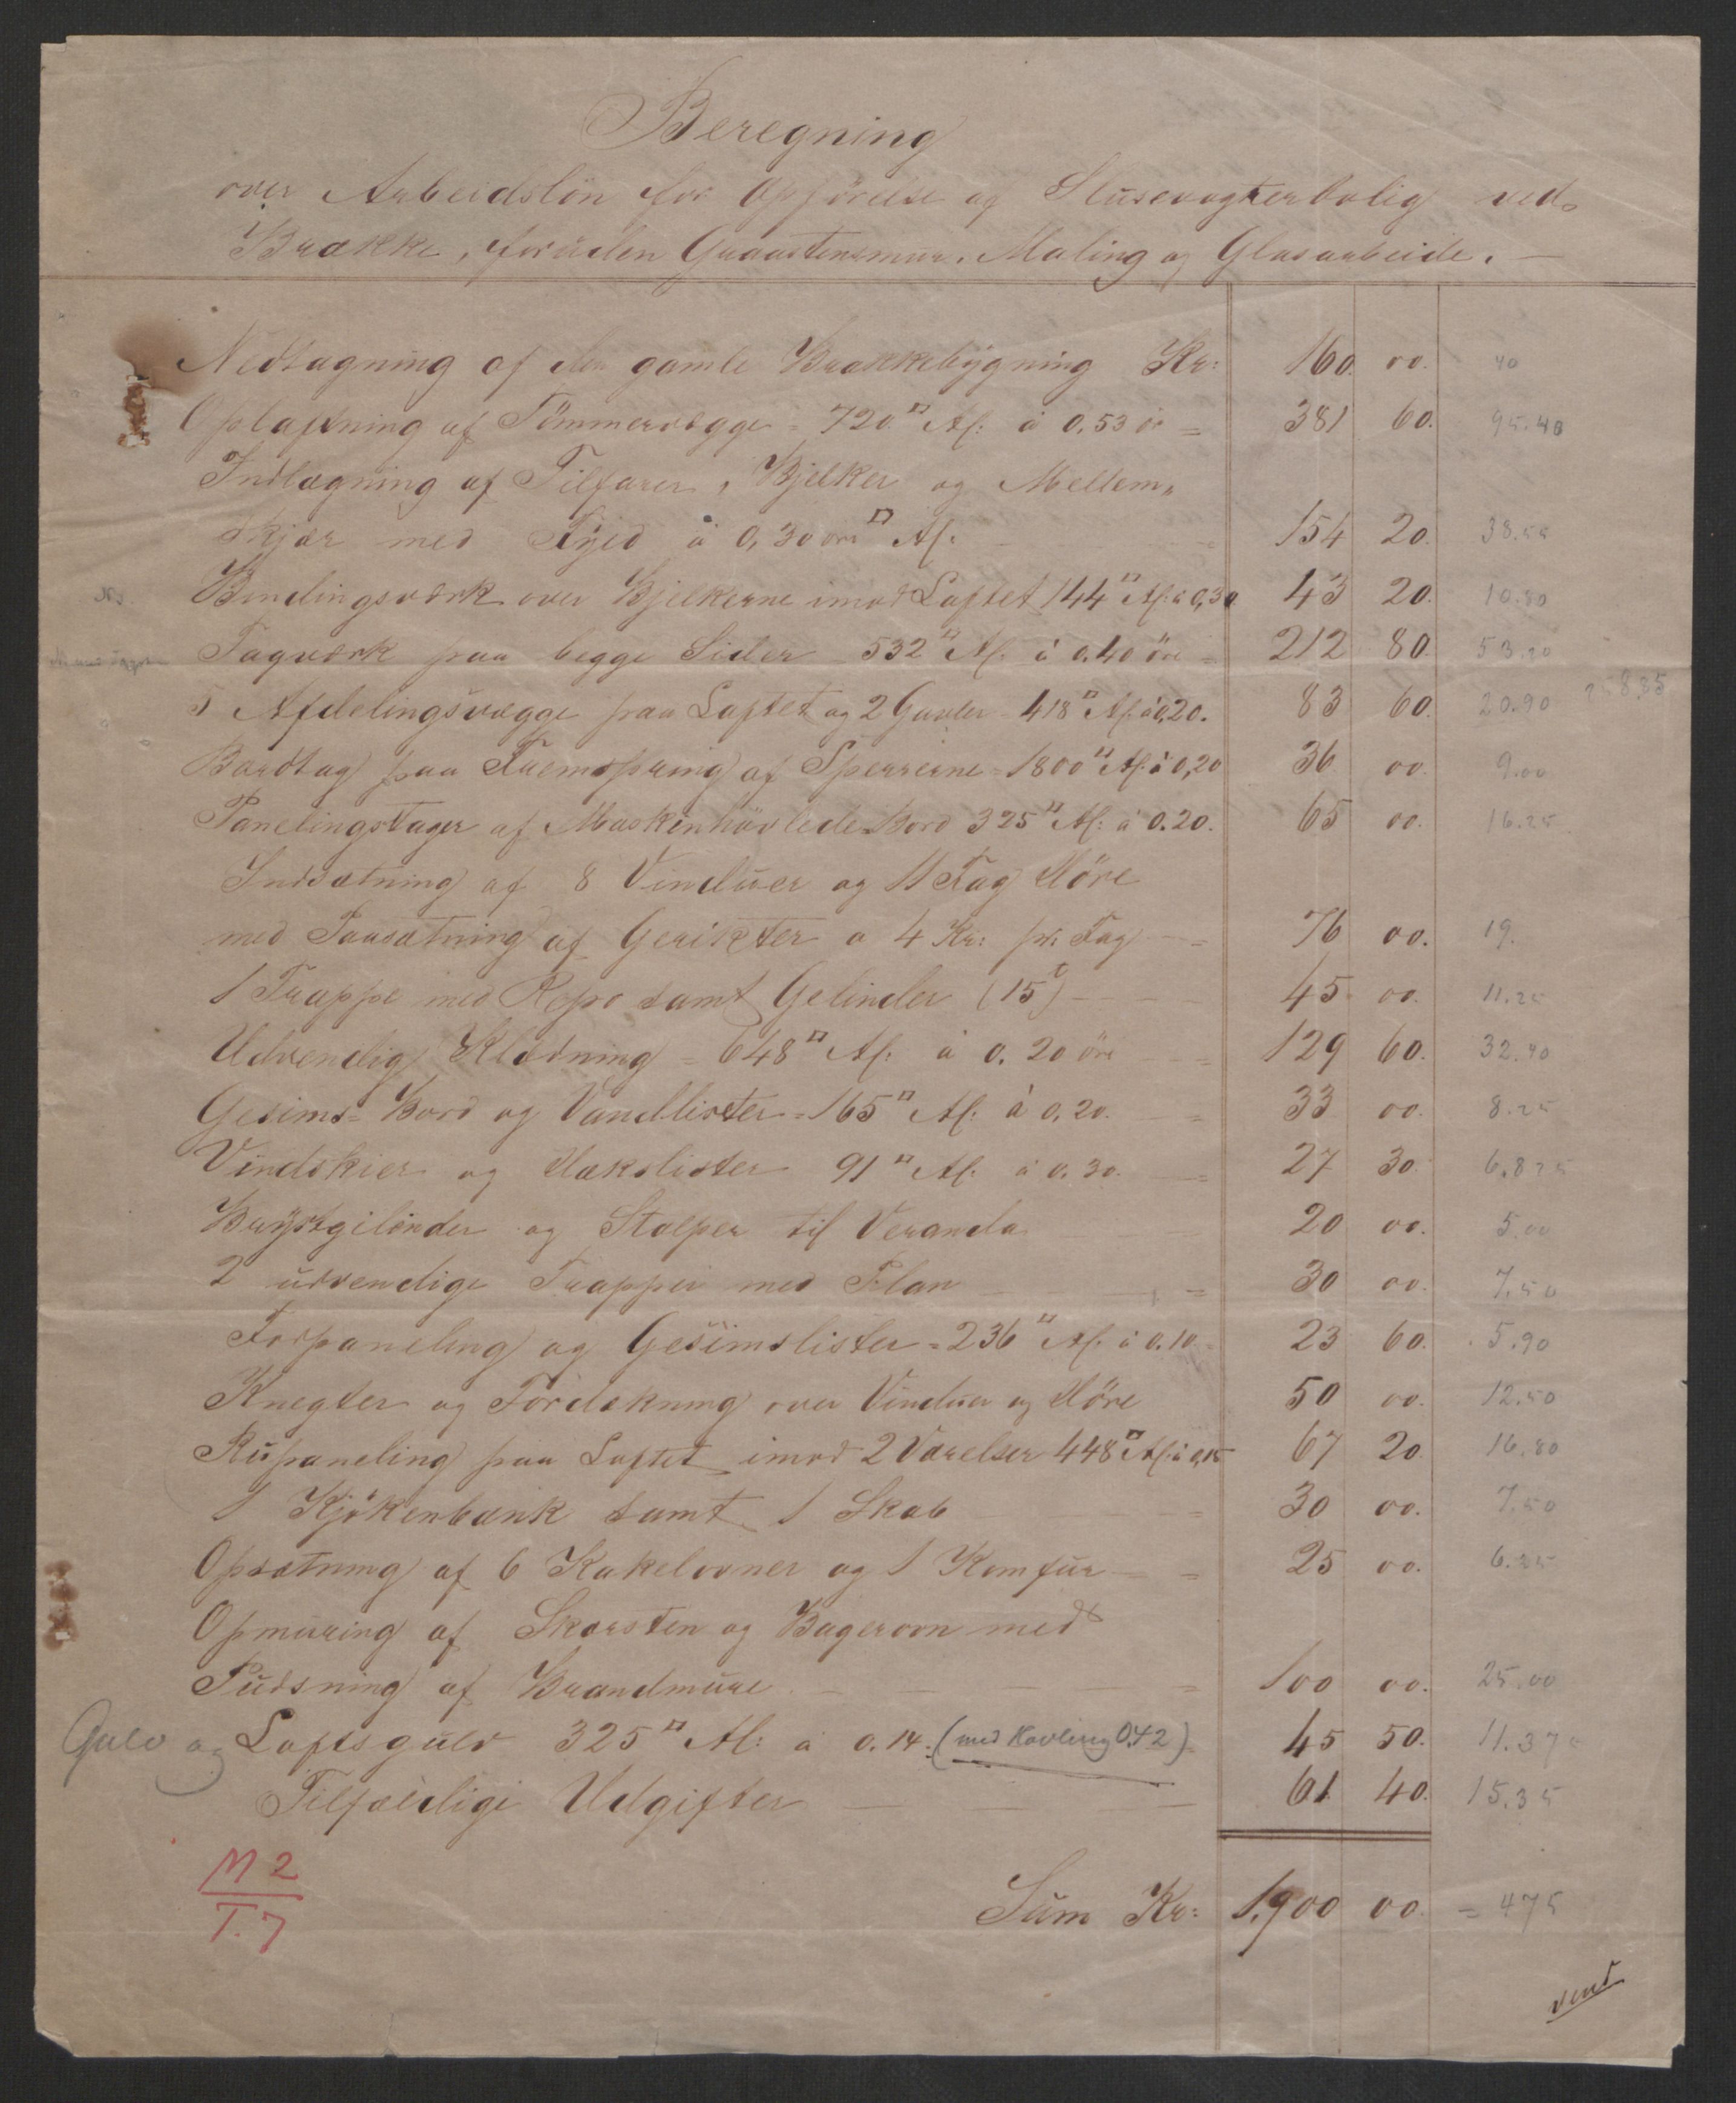 Beregning
over Arbeidslön for Opförelse af Slusevogterbolig ved
Brække, foruden Graastensmur, Maling og Glasarbeide.
Nedtagning af den gamle Brakkebygning Kr: 160. 00. 40
Oplaftning af Tömmervægge = 720 □ Al: à 0,53 ör = 381 60. 95.40
Indlægning af Tilfarer, Bjelker og Mellem-
skjær med Fyld à 0,30 öre □ Al. 154 20. 38.55
Bindingsværk over Bjelkerne imod Loftet 144 □ Al: à 0,30 43 20. 10.80
Tagværk paa begge Sider 532 □ Al. à 0.40 öre = 212 80. 53.20
5 Afdelingsvægge paa Loftet og 2 Gavler 418 □ Al. à 0,20. 83 60. 20.90
Bordtag paa Fremspring af Sperrerne = 1800 □ Al. à 0,20 36 00. 9.00
Panelingstager af Maskenhövlede Bord 325 □ Al: à 0.20. 65 00. 16.25
Indsætning af 8 Vinduer og 11 Fag Döre
med Paasætning af Gerikter a 4 Kr: pr. Fag = 76 00. 19.
1 Trappe med Repo samt Gelinder (15 t) 45 00. 11.25
Udvendig Klædning = 648 □ Al: à 0.20 öre = 129 60. 32.40
Gesims-Bord og Vandlister = 165 □ Al: à 0,20. = 33 00. 8.25
Vindskier og Dækslister 91 □ Al. à 0.30. = 27 30. 6.825
Brystgilender og Stolper til Veranda 20 00. 5.00
2 udvendige Trapper med Plan = 30 00. 7.50
Forpaneling og Gesimslister = 236 □ Al. à 0.10 23 60. 5.90
Knegter og Fordækning over Vinduer og Döre 50 00. 12.50
Rupaneling paa Loftet imod 2 Værelser 448 □ Al: à 0,15 67 20. 16.80
1 Kjökenbænk samt 1 Skab = 30 00. 7.50
Opsætning af 6 Kakelovner og 1 Komfur = 25 00. 6.25
Opmuring af Skorsten og Bagerovn med
Pudsning af Brandmure = 100 00. 25.00
Gulv og Loftsgulv 325 □ Al: a 0.14. (med Hövling 0.42) 45 50. 11.375
Tilfældige Udgifter 61 40. 15.35
M 2
T. 7
Sum Kr: 1.900 00. = 475
vend